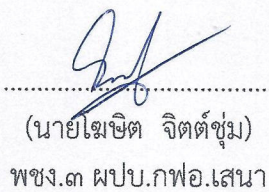 (นายโฆษิต จิตต์ชุ่ม)
พชง.๓ ผปบ.กฟอ.เสนา